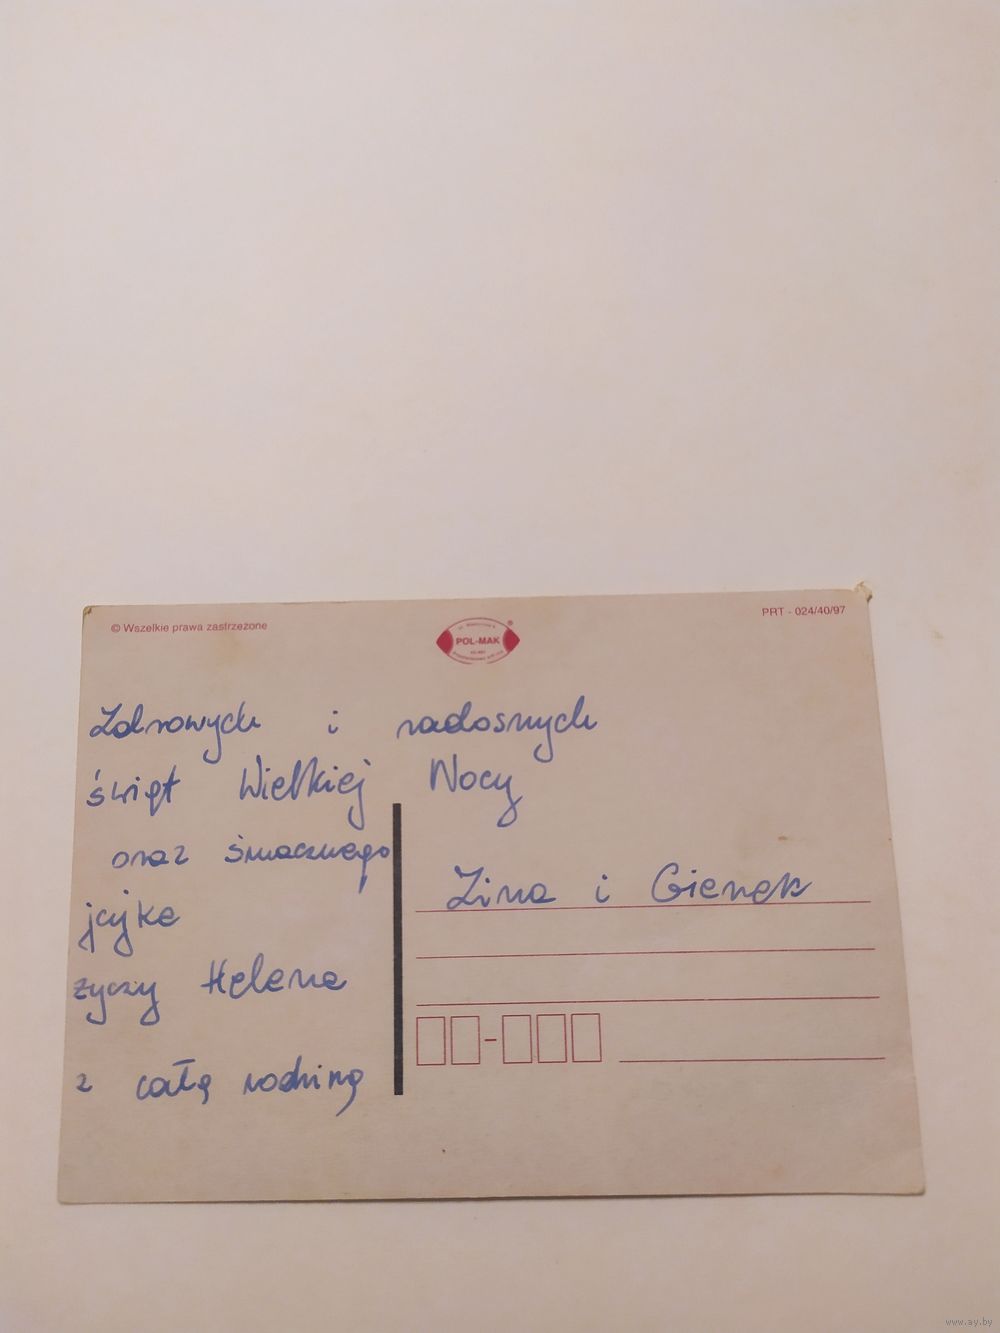 © Wszelkie prawa zastrzeżone
POL-MAK
®
PRT - 024/40/97
Zdrowych i radosnych
świąt Wielkiej Nocy
oraz śmacznego
jajka
życzy Helena
z całą rodziną
Zina i Gienek
www.ay.by